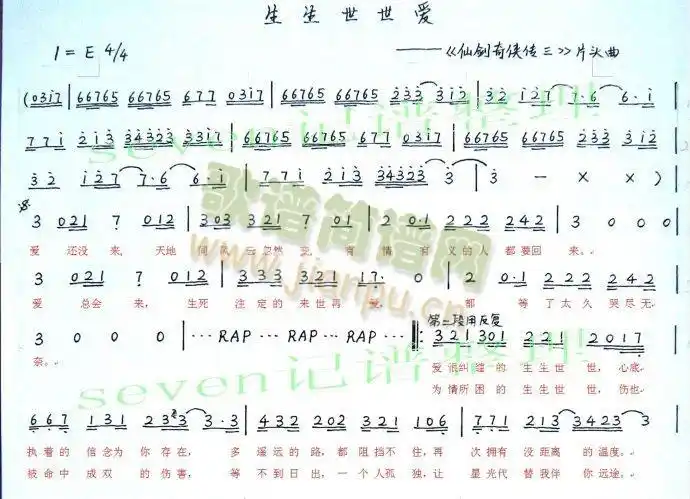 生生世世爱
1=E 4/4 ——《仙剑奇侠传三》片头曲
(0317 | 66765 66765 677 0317 | 66765 66765 233 312 | 32 127 7·6 6·1 |
771 213 34323 3317 | 66765 66765 677 0317 | 66765 66765 233 312 |
32 127 7·6 6·1 | 771 213 34323 3 | 3 — X X )
3 021 7 012 | 303 321 7 01 | 2 0·1 222 242 | 3 0 0 0
爱 还没 来, 天地 间风 云忽然 变, 有 情 有 义的人 都要回 来。
3 021 7 012 | 333 321 17· 0 | 2 0·1 222 242
爱 总会 来, 生死 注定的 来世再 爱, 都 等 了太久 哭尽无
第二段用反复
3 0 0 0 | ··· RAP ··· RAP ··· RAP ··· 321 301 221 2017
奈。 爱很纠缠的 生生世 世,心底
为情所困的 生生世 世,伤也
667 131 233 3·3 | 432 202 321 106 | 771 213 3423 3
执着的 信念为 你存在, 多 遥远的 路,都 阻挡不 住,再 次拥有 没距离 的温度。
被命中 成双 的伤害, 等 不到日 出,一 个人孤 独,让 星光代 替我伴 你远途。
seven记谱整理
seven记谱整理
歌谱简谱网
www.jianpu.cn